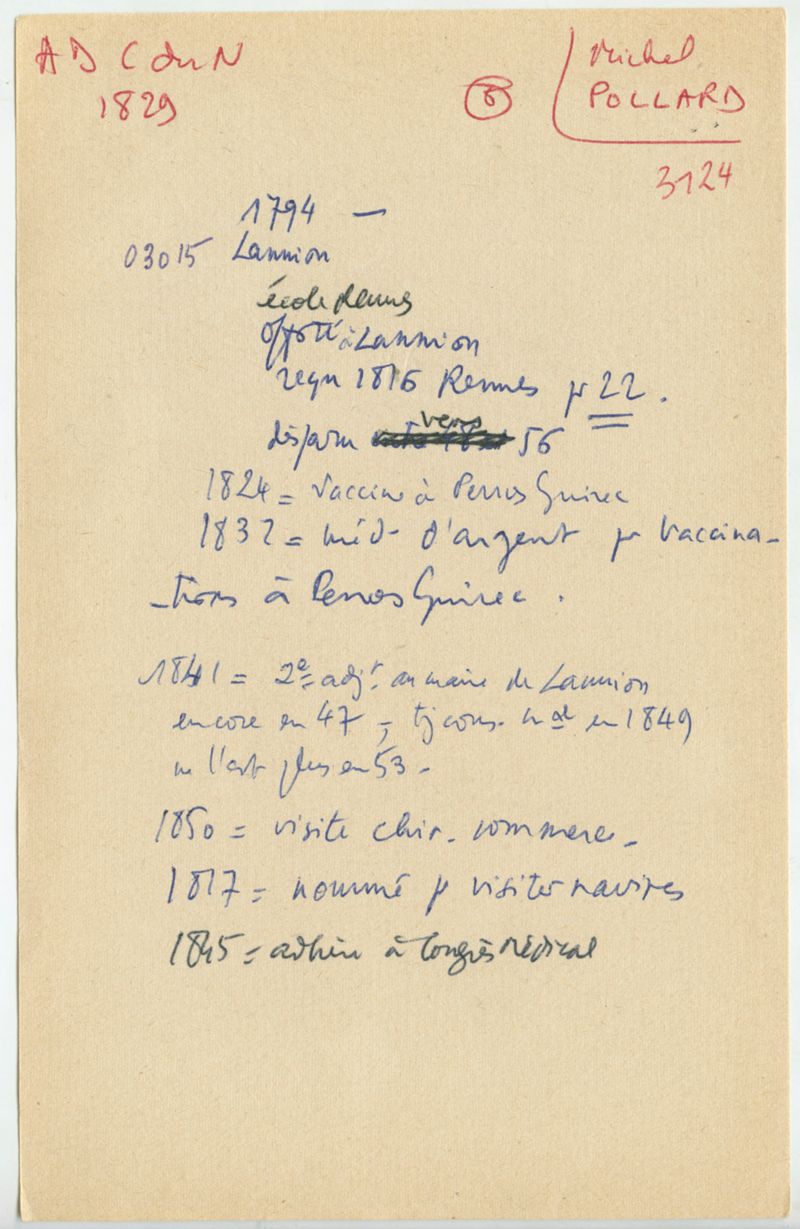 AD C du N
1829
Michel
POLLARD
3124
1794 —
03015 Lannion
école Rennes
à Lannion
reçu 1816 Rennes pr 22.
disparu vers 56
1824 = vaccine à Perros Guirec
1832 = méd. d'argent pr vaccina-
-tions à Perros Guirec.
1841 = 2e adjt. au maire de Lannion
encore en 47 - tj cons. mal en 1849
ne l'est plus en 53 -
1850 = visite chir. commerce -
1817 = nommé pr visiter navires
1845 = adhère à Congrès Médical